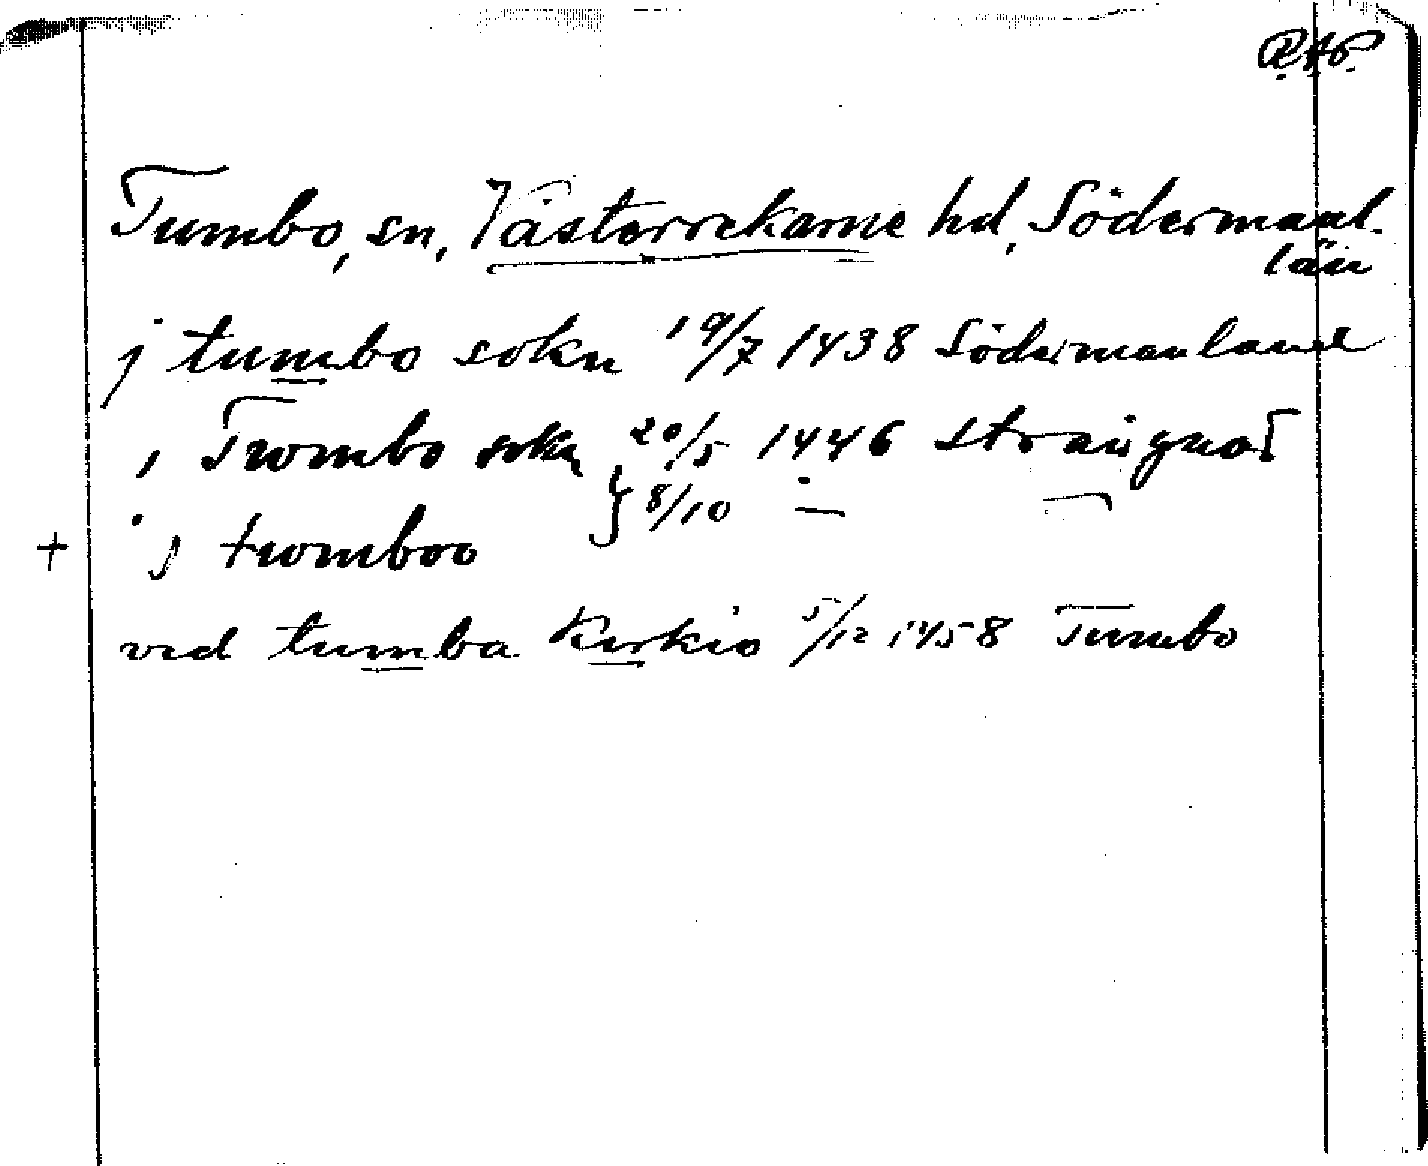 R.A.P.
Tumbo, sn, Västerrekarne hd, Södermanl.
län
j tumbo sokn 19/7 1438 Södermanland
i Twmbo sokn 20/5 1446 Strängnäs
+ j twmboo } 8/10 — "
ved tumba kirkio 5/12 1458 Tumbo